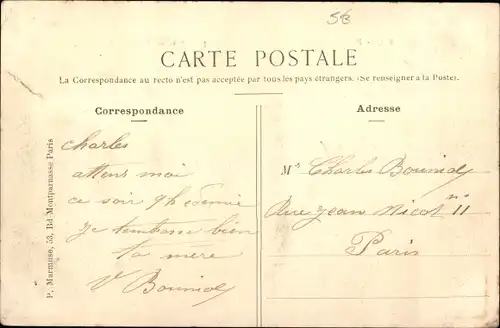 CARTE POSTALE
La Correspondance au recto n'est pas acceptée par tous les pays étrangers. (Se renseigner à la Poste).
Correspondance
Charles
attens moi
ce soir 9h edemie
je tembrasse bien
ta mère
V Bouniol
Adresse
Mr Charles Bouniol
Rue Jean Nicot no 11
Paris
P. Marmuse, 53, Bd-Montparnasse Paris